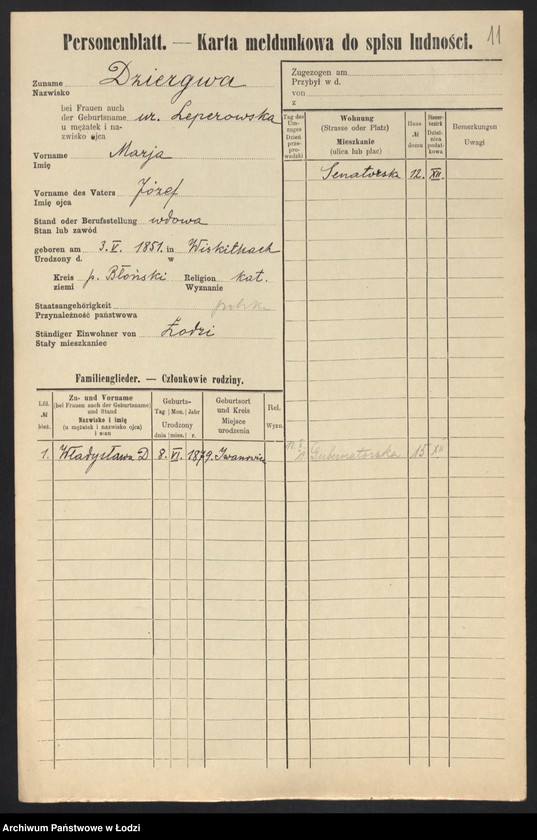 11
Personenblatt. — Karta meldunkowa do spisu ludności.
Zuname Dziergwa
Nazwisko
bei Frauen auch
der Geburtsname ur. Leperowska
u mężatek i na-
zwisko ojca
Vorname Marja
Imię
Vorname des Vaters Józef
Imię ojca
Stand oder Berufsstellung wdowa
Stan lub zawód
geboren am 3. V. 1851. in Wiskitkach
Urodzony d. w
Kreis p. Błoński Religion kat.
ziemi Wyznanie
Staatsangehörigkeit polska
Przynależność państwowa
Ständiger Einwohner von Łodzi
Stały mieszkaniec
Zugezogen am
Przybył w d.
von
z
Tag des Ein-zuges Dzień prze-prowadzki
Wohnung
(Strasse oder Platz)
Mieszkanie
(ulica lub plac)
Haus № domu
Steuer-bezirk Dzielnica podat-kowa
Bemerkungen
Uwagi
Senatorska 12. XII.
Gubernatorska 15 XII
Familienglieder. — Członkowie rodziny.
Lfd. № bież.
Zu- und Vorname
(bei Frauen auch der Geburtsname)
und Stand
Nazwisko i imię
(u mężatek i nazwisko ojca)
i stan
Geburts-
Tag Mon. Jahr
Urodzony
dnia mies. r.
Geburtsort
und Kreis
Miejsce
urodzenia
Rel.
Wyzn.
1. Władysława D 8. VI. 1879. Iwanowice
Archiwum Państwowe w Łodzi